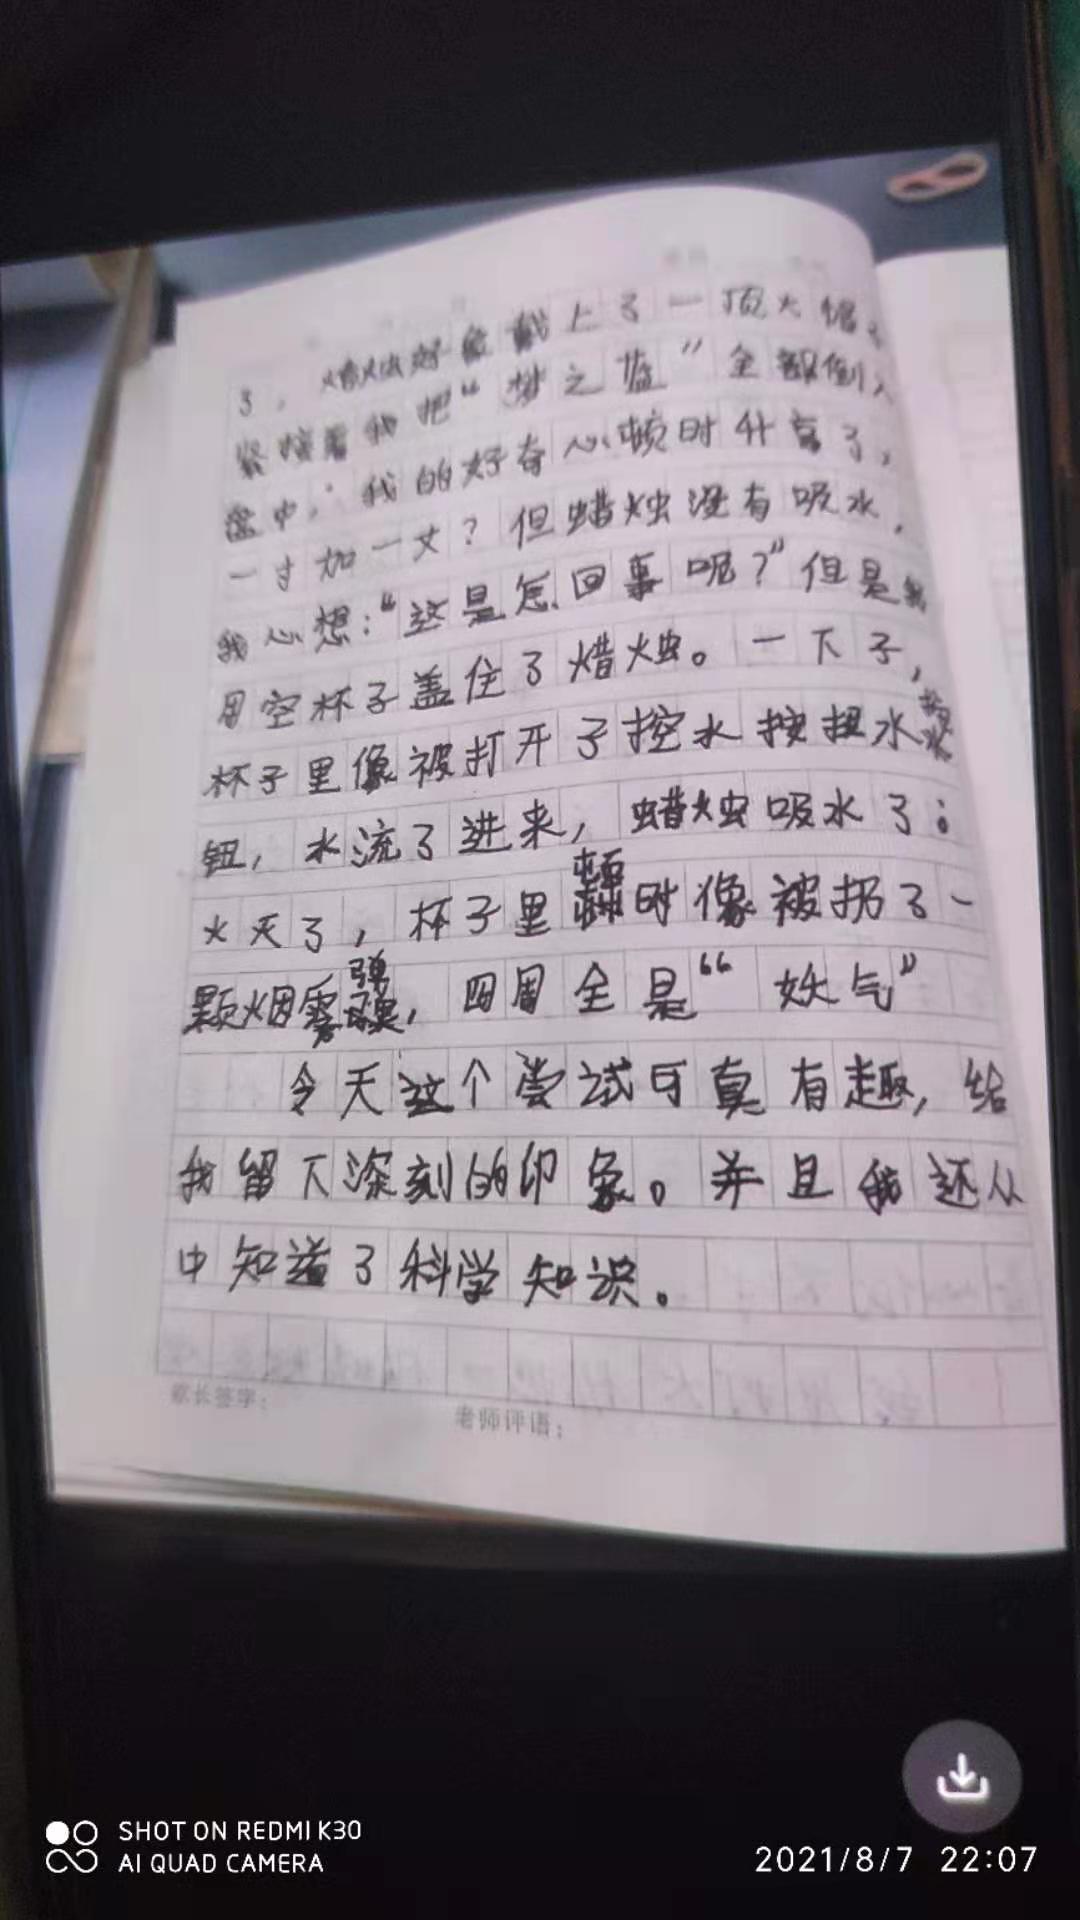 了，蜡烛好像戴上了一顶火帽
紧接着我把“梦之蓝”全部倒入
盘中，我的好奇心顿时升高了，
一寸加一丈？但蜡烛没有吸水，
我心想：“这是怎回事呢？”但是我
用空杯子盖住了蜡烛。一下子，
杯子里像被打开了控水按扭水
钮，水流了进来，蜡烛吸水了；
火灭了，杯子里顿时像被扔了一
颗烟雾弹，四周全是“妖气”
今天这个尝试可真有趣，给
我留下深刻的印象。并且我还从
中知道了科学知识。
家长签字：
老师评语：
SHOT ON REDMI K30
AI QUAD CAMERA
2021/8/7 22:07